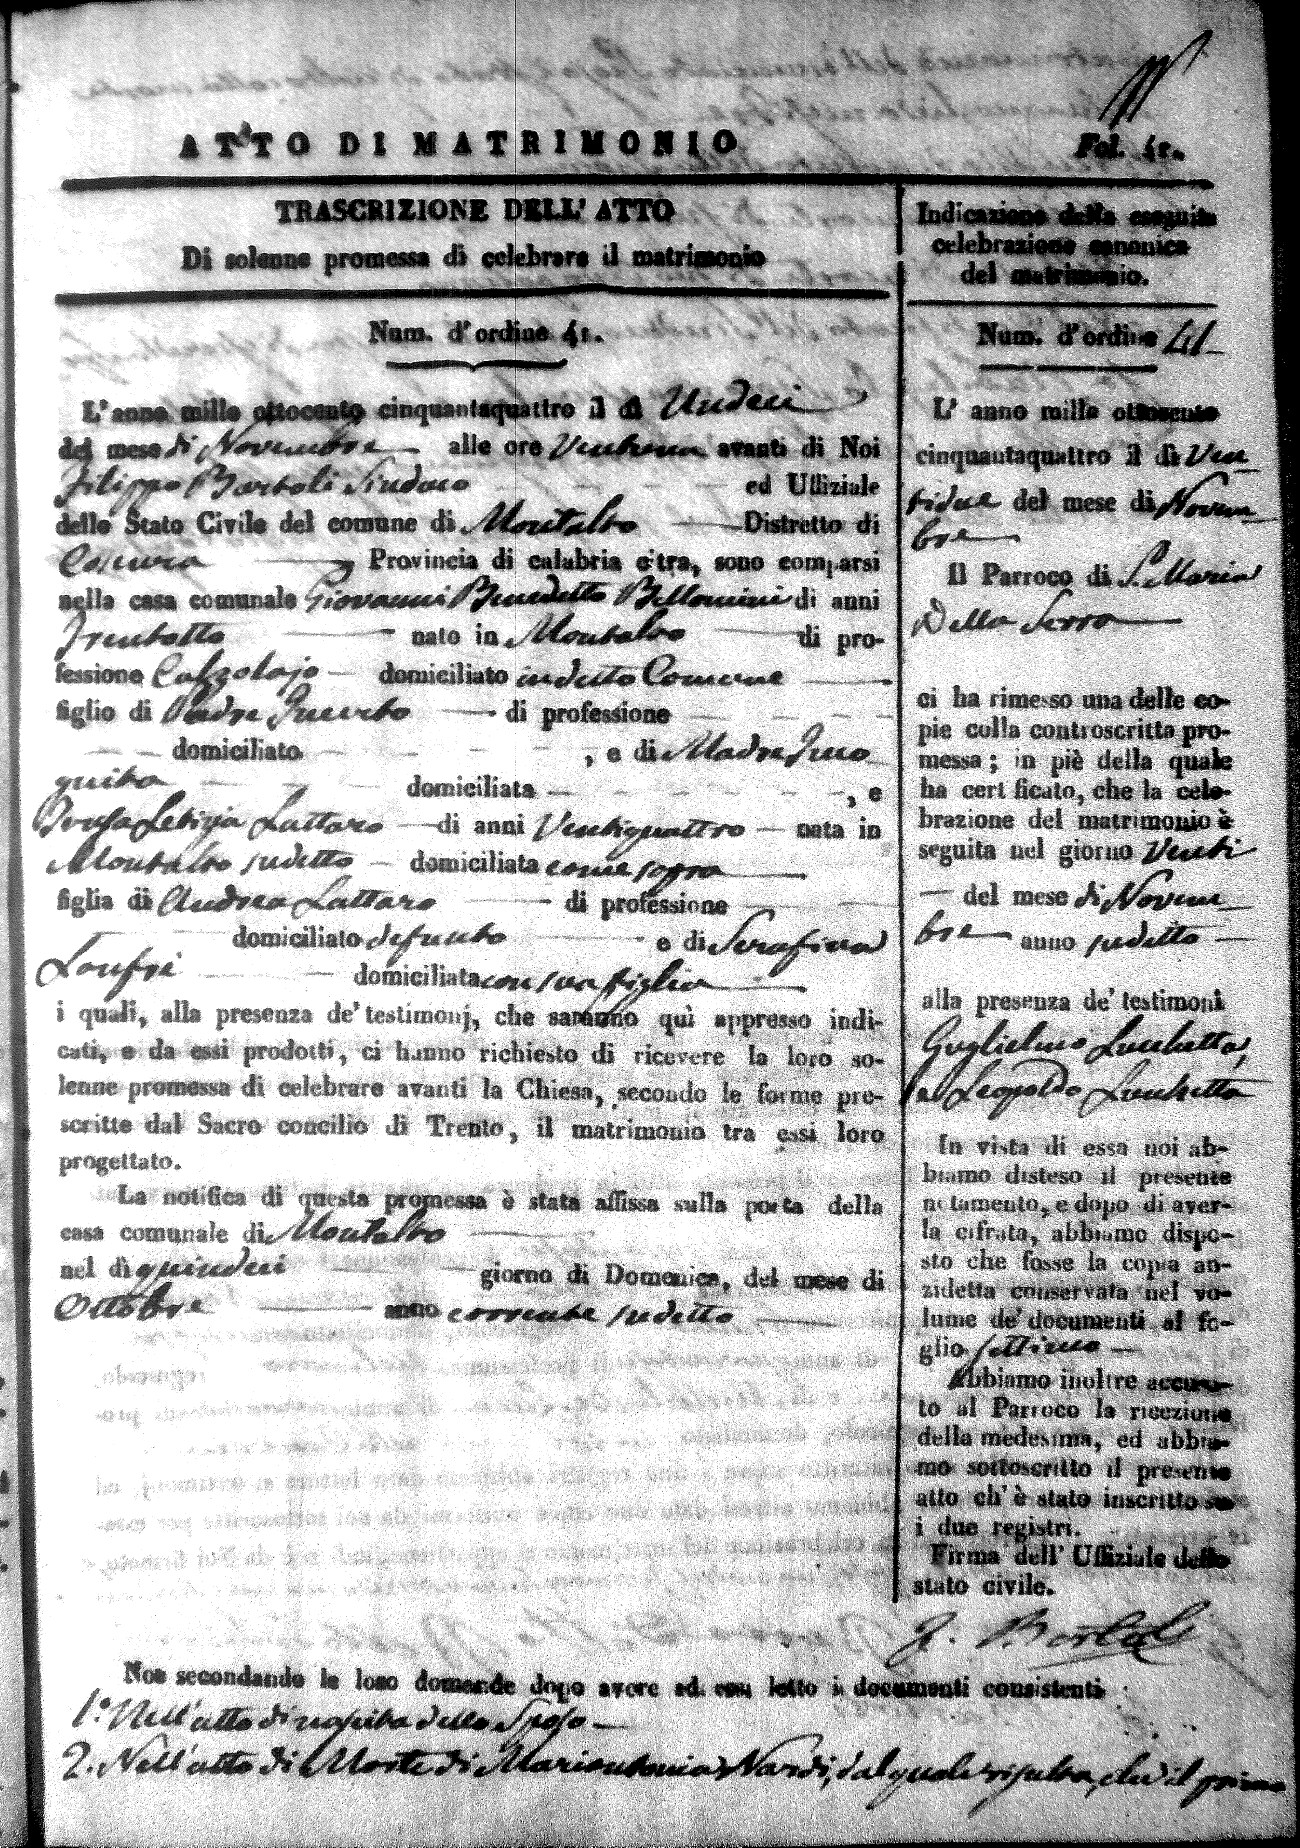 ATTO DI MATRIMONIO
Fol. 41.
TRASCRIZIONE DELL' ATTO
Di solenne promessa di celebrare il matrimonio
Num. d'ordine 41.
L'anno mille ottocento cinquantaquattro il dì Undeci
del mese di Novembre alle ore avanti di Noi
Filippo Bartoli Sindaco ed Uffiziale
dello Stato Civile del comune di Montalto Distretto di
Cosenza Provincia di calabria citra, sono comparsi
nella casa comunale Giovanni Benedetto Bellomini di anni
Trentotto nato in Montalto di pro-
fessione Calzolajo domiciliato in detto Comune
figlio di Padre Incerto di professione
domiciliato , e di Madre Inco
gnita domiciliata , e
Letizia Lattaro di anni Ventiquattro nata in
Montalto sudetto domiciliata come sopra
figlia di Andrea Lattaro di professione
domiciliato defunto e di Serafina
domiciliata con sua figlia
i quali, alla presenza de' testimonj, che saranno quì appresso indi-
cati, e da essi prodotti, ci hanno richiesto di ricevere la loro so-
lenne promessa di celebrare avanti la Chiesa, secondo le forme pre-
scritte dal Sacro concilio di Trento, il matrimonio tra essi loro
progettato.
La notifica di questa promessa è stata affissa sulla porta della
casa comunale di Montalto
nel dì quindeci giorno di Domenica, del mese di
Ottobre anno corrente sudetto
Indicazione della eseguita
celebrazione canonica
del matrimonio.
Num. d'ordine 41
L' anno mille ottocento
cinquantaquattro il dì Ven
tidue del mese di Novem
bre
Il Parroco di S. Maria
Della Serra
ci ha rimesso una delle co-
pie colla controscritta pro-
messa; in piè della quale
ha certificato, che la cele-
brazione del matrimonio è
seguita nel giorno Venti
del mese di Novem
bre anno sudetto
alla presenza de' testimoni
Guglielmo Lucchetta,
e Leopoldo Lucchetta
In vista di essa noi ab-
biamo disteso il presente
notamento, e dopo di aver-
la cifrata, abbiamo dispo-
sto che fosse la copia an-
zidetta conservata nel vo-
lume de' documenti al fo-
glio settimo
Abbiamo inoltre accusa-
to al Parroco la ricezione
della medesima, ed abbia-
mo sottoscritto il presente
atto ch' è stato inscritto su
i due registri.
Firma dell' Uffiziale dello
stato civile.
F. Bartoli
Noi secondando le loro domande dopo avere ad essi letto i documenti consistenti
1.° Nell'atto di nascita dello Sposo
2. Nell'atto di Morte di Mariantonia Nardi, dal quale risulta, che il primo